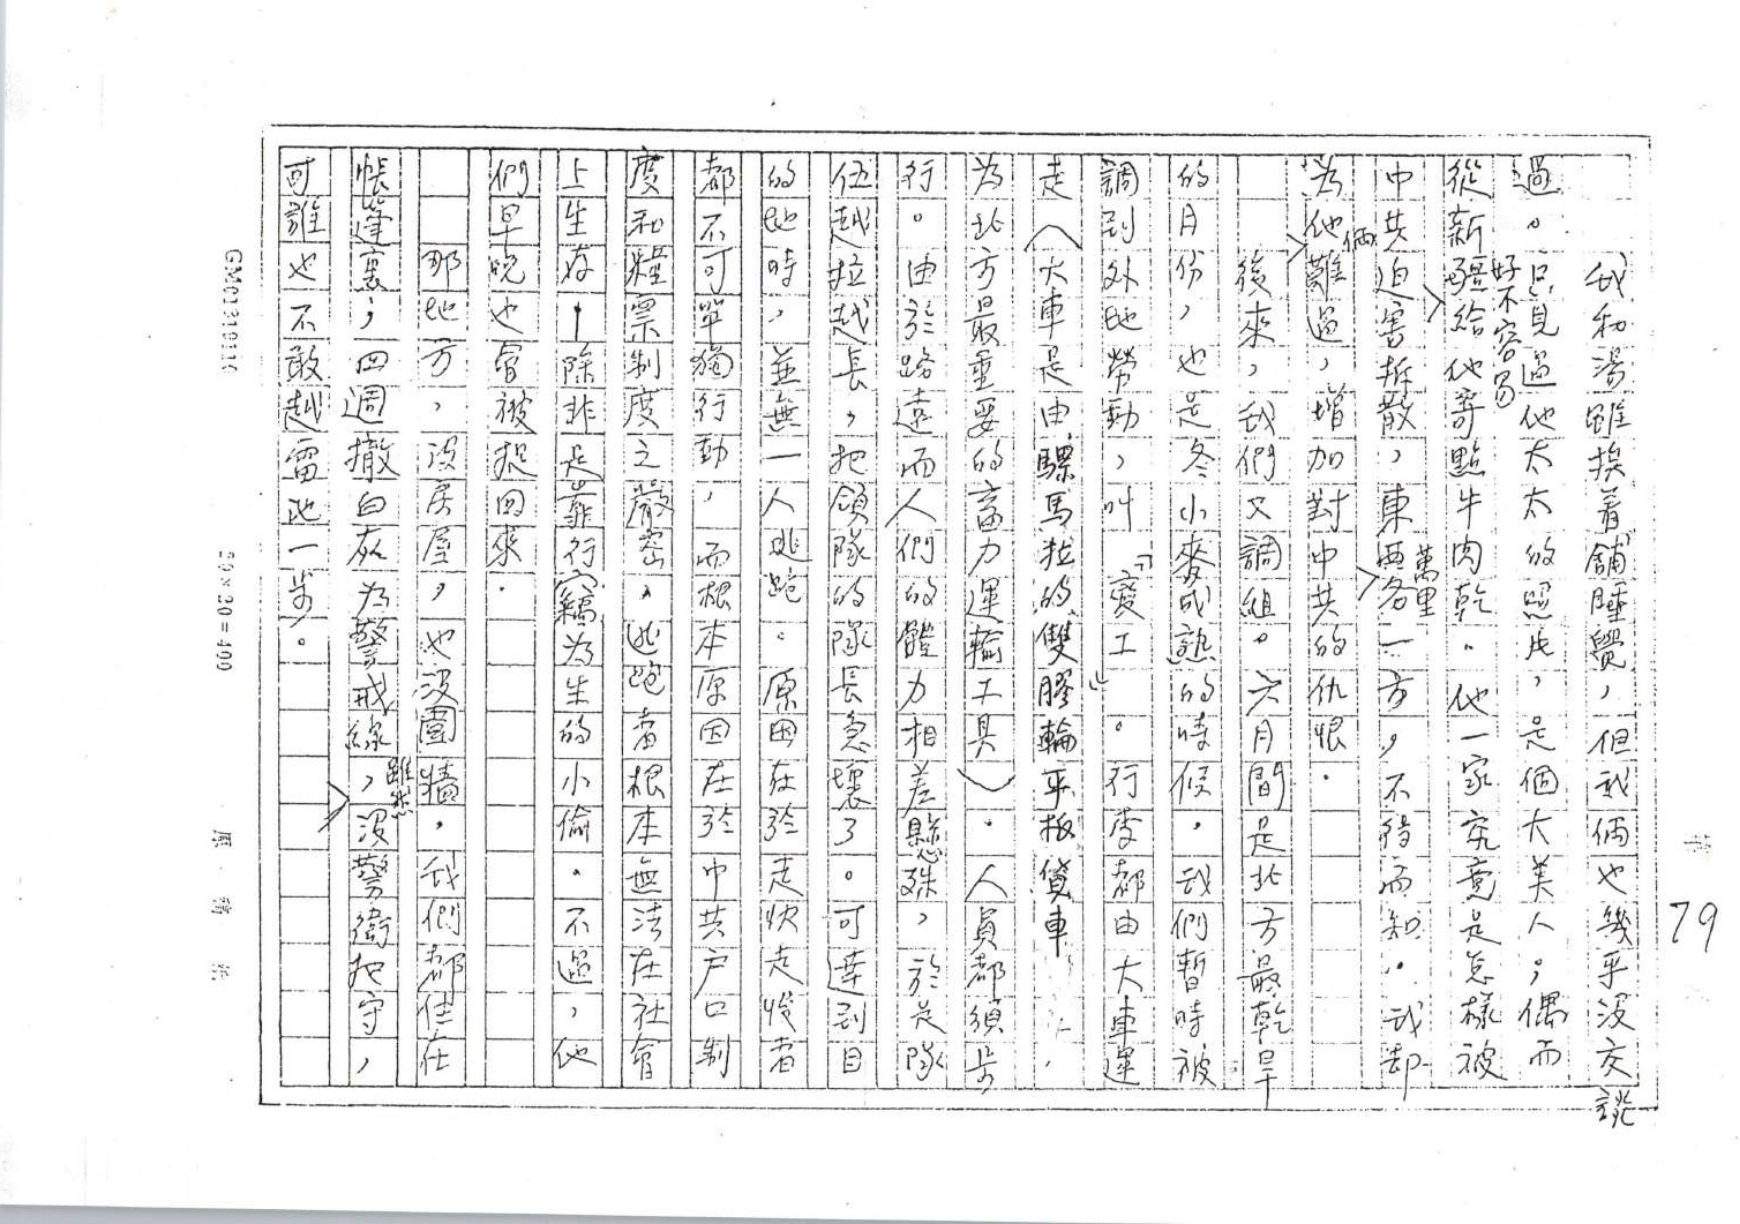 79
我和湯雖挨着舖睡覺，但我倆也幾乎沒交談
過。只見過他太太的照片，是個大美人；偶而
從新疆好不容易給他寄點牛肉乾。他一家究竟是怎樣被
中共迫害拆散，東西萬里各一方，不得而知。我却
為他倆難過，增加對中共的仇恨。
後來，我們又調組。六月間是北方最乾旱
的月份，也是冬小麥成熟的時候，我們暫時被
調到外地勞動，叫「變工」。行李都由大車運
走（大車是由騾馬拉的雙膠輪平板貨車，
為北方最重要的畜力運輸工具）。人員都須步
行。由於路遠而人們的體力相差懸殊，於是隊
伍越拉越長，把領隊的隊長急壞了。可達到目
的地時，並無一人逃跑。原因在於走快走慢者
都不可單獨行動，而根本原因在於中共戶口制
度和糧票制度之嚴密，逃跑者根本無法在社會
上生存－除非是靠行竊為生的小偷。不過，他
們早晚也會被捉回來。
那地方，沒房屋，也沒圍牆，我們都住在
帳篷裏，四週撒白灰為警戒線，雖然沒警衛把守，
可誰也不敢越雷池一步。
20×20=400